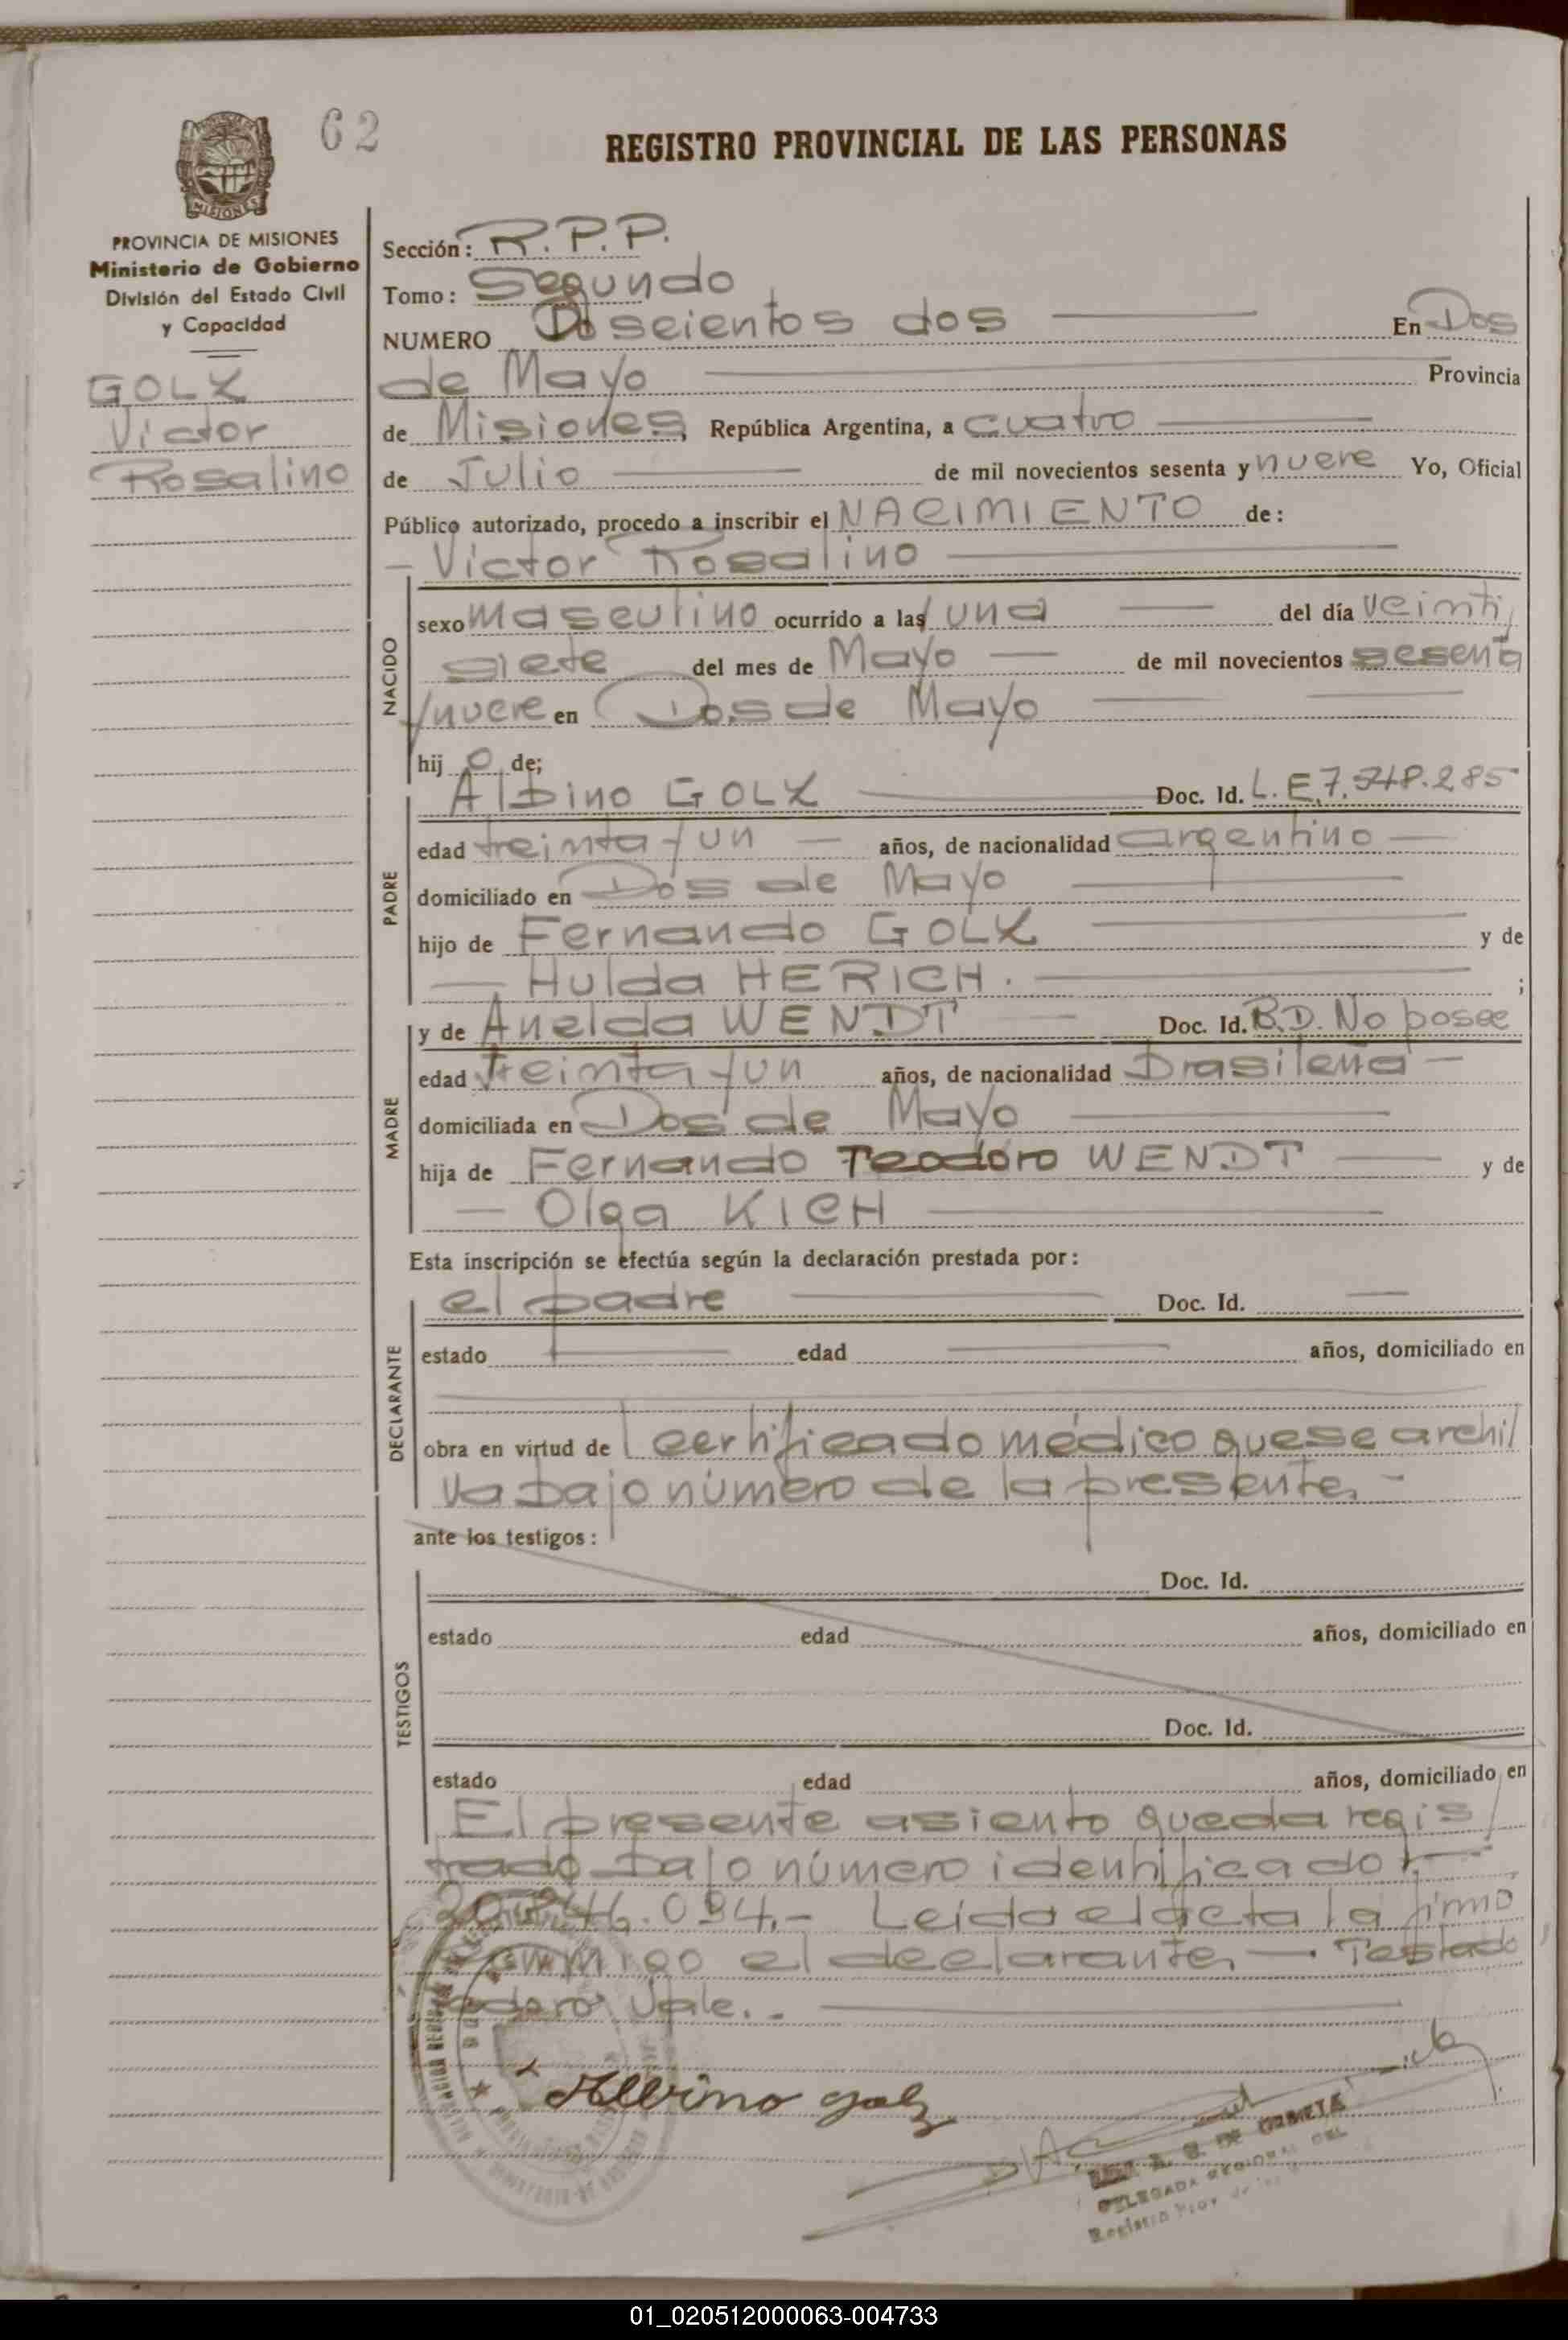 62
REGISTRO PROVINCIAL DE LAS PERSONAS
MISIONES
PROVINCIA DE MISIONES
Ministerio de Gobierno
División del Estado Civil
y Capacidad
GOLZ
Victor
Rosalino
Sección: R.P.P.
Tomo: Segundo
NUMERO Doscientos dos En Dos
de Mayo Provincia
de Misiones, República Argentina, a cuatro
de Julio de mil novecientos sesenta y nueve Yo, Oficial
Público autorizado, procedo a inscribir el NACIMIENTO de:
Victor Rosalino
NACIDO
sexo masculino ocurrido a las/ una del día veinti/
siete del mes de Mayo de mil novecientos sesenta
/nueve en Dos de Mayo
hij o de;
PADRE
Albino GOLZ Doc. Id. L.E.7.548.285
edad treinta y un años, de nacionalidad argentino
domiciliado en Dos de Mayo
hijo de Fernando GOLZ y de
Hulda HERICH. ;
MADRE
y de Anelda WENDT Doc. Id. B.D. No posee
edad treinta y un años, de nacionalidad brasileña
domiciliada en Dos de Mayo
hija de Fernando Teodoro WENDT y de
Olga KICH
Esta inscripción se efectúa según la declaración prestada por:
DECLARANTE
el padre Doc. Id.
estado edad años, domiciliado en
obra en virtud de certificado médico que se archi/
va bajo número de la presente.-
ante los testigos:
TESTIGOS
Doc. Id.
estado edad años, domiciliado en
Doc. Id.
estado edad años, domiciliado en
El presente asiento queda regis/
trado bajo número identificador
094.- Leída el acta la firmó
conmigo el declarante.- Testado
Vale.-
Albino Golz
DE
DELEGADA REGIONAL DEL
Registro Prov. de las
01_020512000063-004733